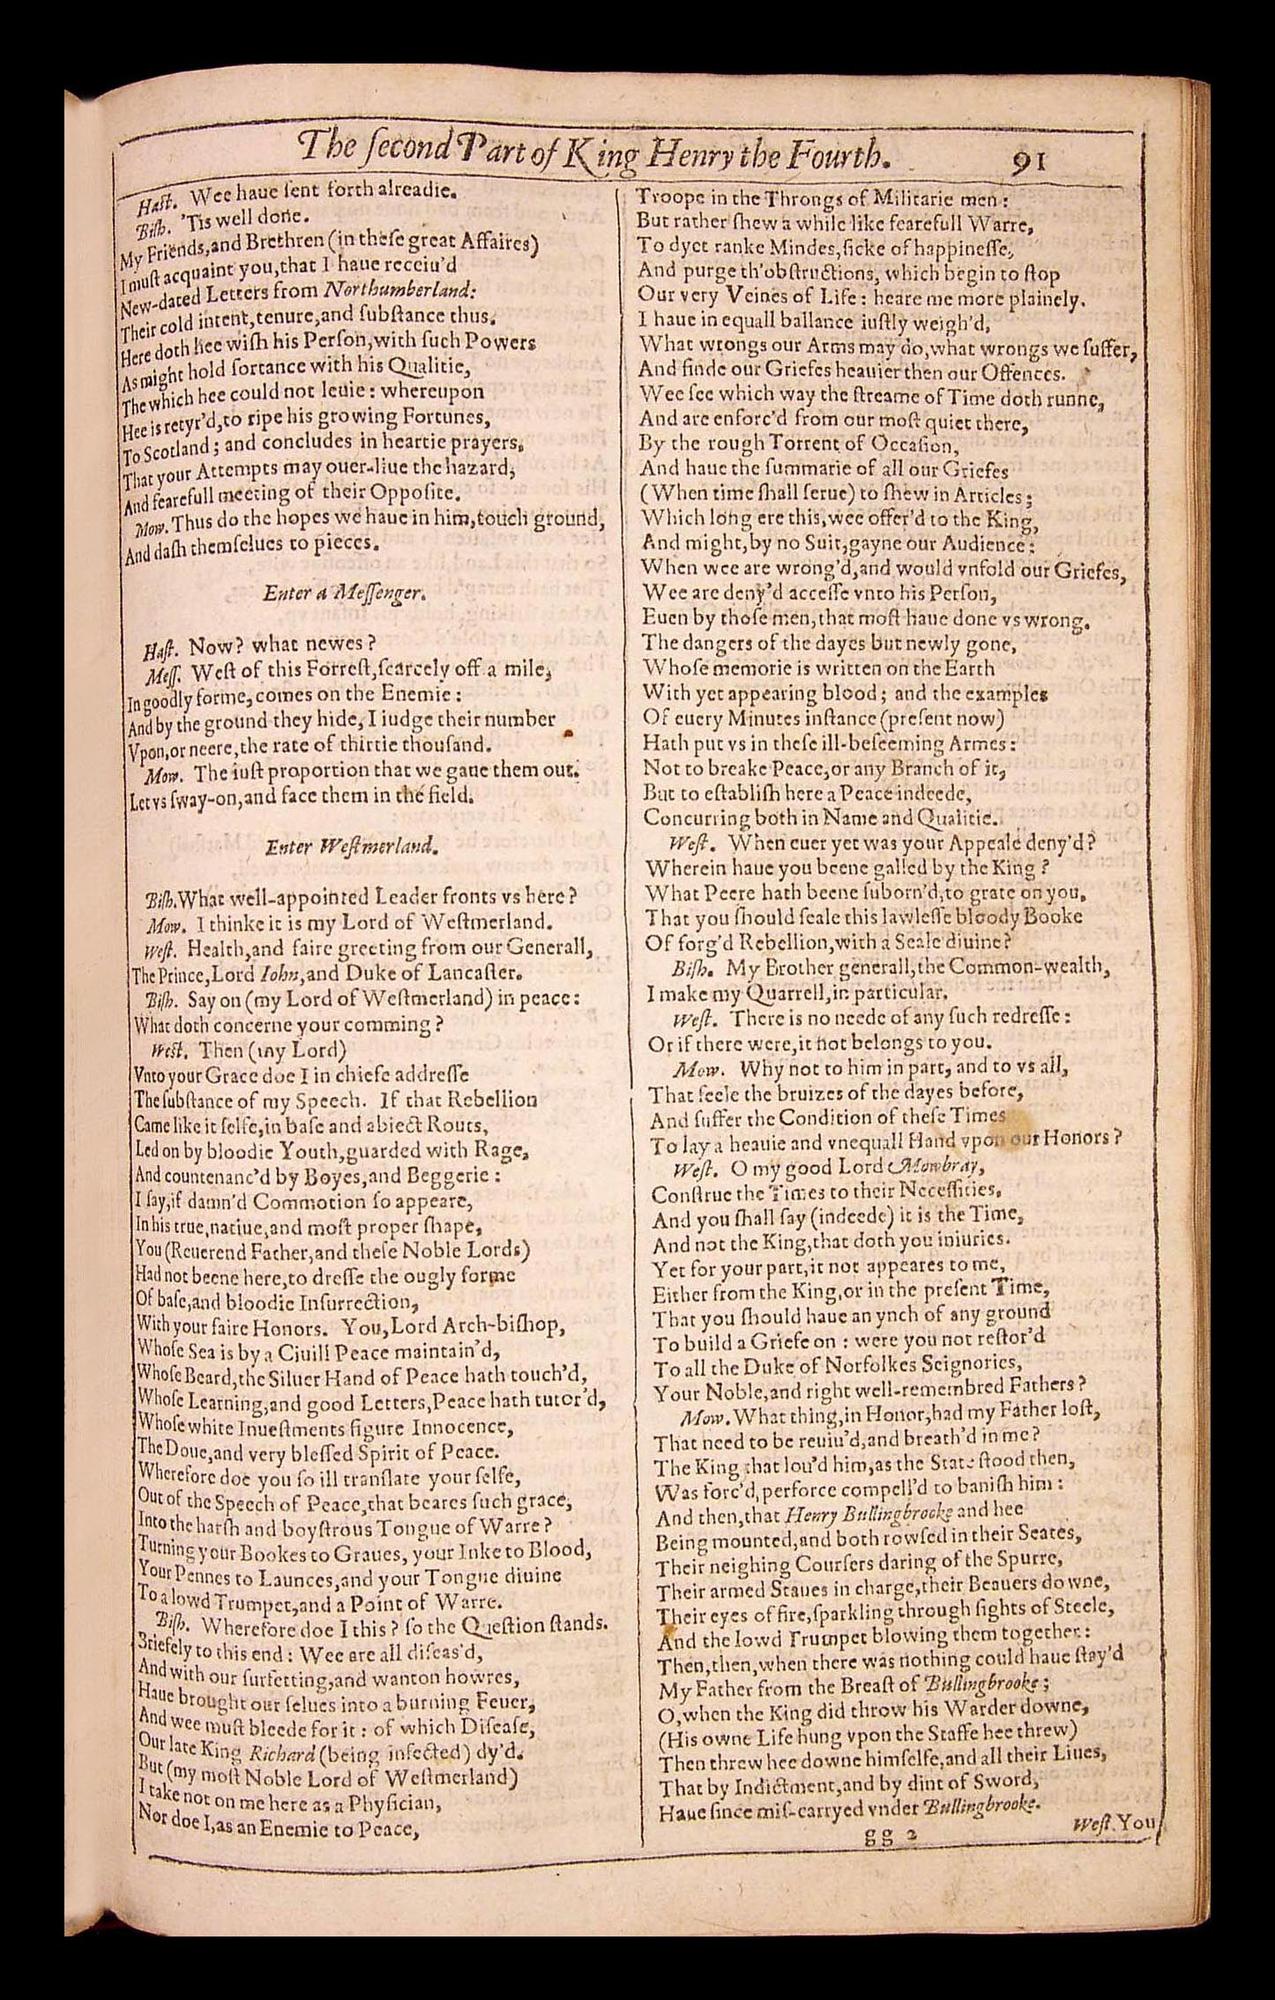 The ſecond Part of King Henry the Fourth. 91
Haſt. Wee haue ſent forth alreadie.
Biſh. 'Tis well done.
My Friends,and Brethren (in theſe great Affaires)
I muſt acquaint you,that I haue receiu'd
New-dated Letters from Northumberland:
Their cold intent,tenure,and ſubſtance thus.
Here doth hee wiſh his Perſon,with ſuch Powers
As might hold ſortance with his Qualitie,
The which hee could not leuie: whereupon
Hee is retyr'd,to ripe his growing Fortunes,
To Scotland; and concludes in heartie prayers,
That your Attempts may ouer-liue the hazard,
And fearefull meeting of their Oppoſite.
Mow. Thus do the hopes we haue in him,touch ground,
And daſh themſelues to pieces.
Enter a Meſſenger.
Haſt. Now? what newes?
Meſſ. Weſt of this Forreſt,ſcarcely off a mile,
In goodly forme,comes on the Enemie:
And by the ground they hide, I iudge their number
Vpon,or neere,the rate of thirtie thouſand.
Mow. The iuſt proportion that we gaue them out.
Let vs ſway-on,and face them in the field.
Enter Weſtmerland.
Biſh. What well-appointed Leader fronts vs here?
Mow. I thinke it is my Lord of Weſtmerland.
Weſt. Health,and faire greeting from our Generall,
The Prince,Lord Iohn,and Duke of Lancaſter.
Biſh. Say on (my Lord of Weſtmerland) in peace:
What doth concerne your comming?
Weſt. Then (my Lord)
Vnto your Grace doe I in chiefe addreſſe
The ſubſtance of my Speech. If that Rebellion
Came like it ſelfe,in baſe and abiect Routs,
Led on by bloodie Youth,guarded with Rage,
And countenanc'd by Boyes,and Beggerie:
I ſay,if damn'd Commotion ſo appeare,
In his true,natiue,and moſt proper ſhape,
You (Reuerend Father,and theſe Noble Lords)
Had not beene here,to dreſſe the ougly forme
Of baſe,and bloodie Inſurrection,
With your faire Honors. You,Lord Arch-biſhop,
Whoſe Sea is by a Ciuill Peace maintain'd,
Whoſe Beard,the Siluer Hand of Peace hath touch'd,
Whoſe Learning,and good Letters,Peace hath tutor'd,
Whoſe white Inueſtments figure Innocence,
The Doue,and very bleſſed Spirit of Peace.
Wherefore doe you ſo ill tranſlate your ſelfe,
Out of the Speech of Peace,that beares ſuch grace,
Into the harſh and boyſtrous Tongue of Warre?
Turning your Bookes to Graues, your Inke to Blood,
Your Pennes to Launces,and your Tongue diuine
To a lowd Trumpet,and a Point of Warre.
Biſh. Wherefore doe I this? ſo the Queſtion ſtands.
Briefely to this end: Wee are all diſeas'd,
And with our ſurfetting,and wanton howres,
Haue brought our ſelues into a burning Feuer,
And wee muſt bleede for it: of which Diſeaſe,
Our late King Richard (being infected) dy'd.
But (my moſt Noble Lord of Weſtmerland)
I take not on me here as a Phyſician,
Nor doe I,as an Enemie to Peace,
Troope in the Throngs of Militarie men:
But rather ſhew a while like fearefull Warre,
To dyet ranke Mindes,ſicke of happineſſe,
And purge th'obſtructions, which begin to ſtop
Our very Veines of Life: heare me more plainely.
I haue in equall ballance iuſtly weigh'd,
What wrongs our Arms may do,what wrongs we ſuffer,
And finde our Griefes heauier then our Offences.
Wee ſee which way the ſtreame of Time doth runne,
And are enforc'd from our moſt quiet there,
By the rough Torrent of Occaſion,
And haue the ſummarie of all our Griefes
(When time ſhall ſerue) to ſhew in Articles;
Which long ere this,wee offer'd to the King,
And might,by no Suit,gayne our Audience:
When wee are wrong'd,and would vnfold our Griefes,
Wee are deny'd acceſſe vnto his Perſon,
Euen by thoſe men,that moſt haue done vs wrong.
The dangers of the dayes but newly gone,
Whoſe memorie is written on the Earth
With yet appearing blood; and the examples
Of euery Minutes inſtance (preſent now)
Hath put vs in theſe ill-beſeeming Armes:
Not to breake Peace,or any Branch of it,
But to eſtabliſh here a Peace indeede,
Concurring both in Name and Qualitie.
Weſt. When euer yet was your Appeale deny'd?
Wherein haue you beene galled by the King?
What Peere hath beene ſuborn'd,to grate on you,
That you ſhould ſeale this lawleſſe bloody Booke
Of forg'd Rebellion,with a Seale diuine?
Biſh. My Brother generall,the Common-wealth,
I make my Quarrell,in particular.
Weſt. There is no neede of any ſuch redreſſe:
Or if there were,it not belongs to you.
Mow. Why not to him in part, and to vs all,
That feele the bruizes of the dayes before,
And ſuffer the Condition of theſe Times
To lay a heauie and vnequall Hand vpon our Honors?
Weſt. O my good Lord Mowbray,
Conſtrue the Times to their Neceſſities,
And you ſhall ſay (indeede) it is the Time,
And not the King,that doth you iniuries.
Yet for your part,it not appeares to me,
Either from the King,or in the preſent Time,
That you ſhould haue an ynch of any ground
To build a Griefe on: were you not reſtor'd
To all the Duke of Norfolkes Seignories,
Your Noble,and right well-remembred Fathers?
Mow. What thing,in Honor,had my Father loſt,
That need to be reuiu'd,and breath'd in me?
The King that lou'd him,as the State ſtood then,
Was forc'd,perforce compell'd to baniſh him:
And then,that Henry Bullingbrooke and hee
Being mounted,and both rowſed in their Seates,
Their neighing Courſers daring of the Spurre,
Their armed Staues in charge,their Beauers downe,
Their eyes of fire,ſparkling through ſights of Steele,
And the lowd Trumpet blowing them together:
Then,then,when there was nothing could haue ſtay'd
My Father from the Breaſt of Bullingbrooke;
O,when the King did throw his Warder downe,
(His owne Life hung vpon the Staffe hee threw)
Then threw hee downe himſelfe,and all their Liues,
That by Indictment,and by dint of Sword,
Haue ſince miſ-carryed vnder Bullingbrooke.
gg 2 Weſt. You